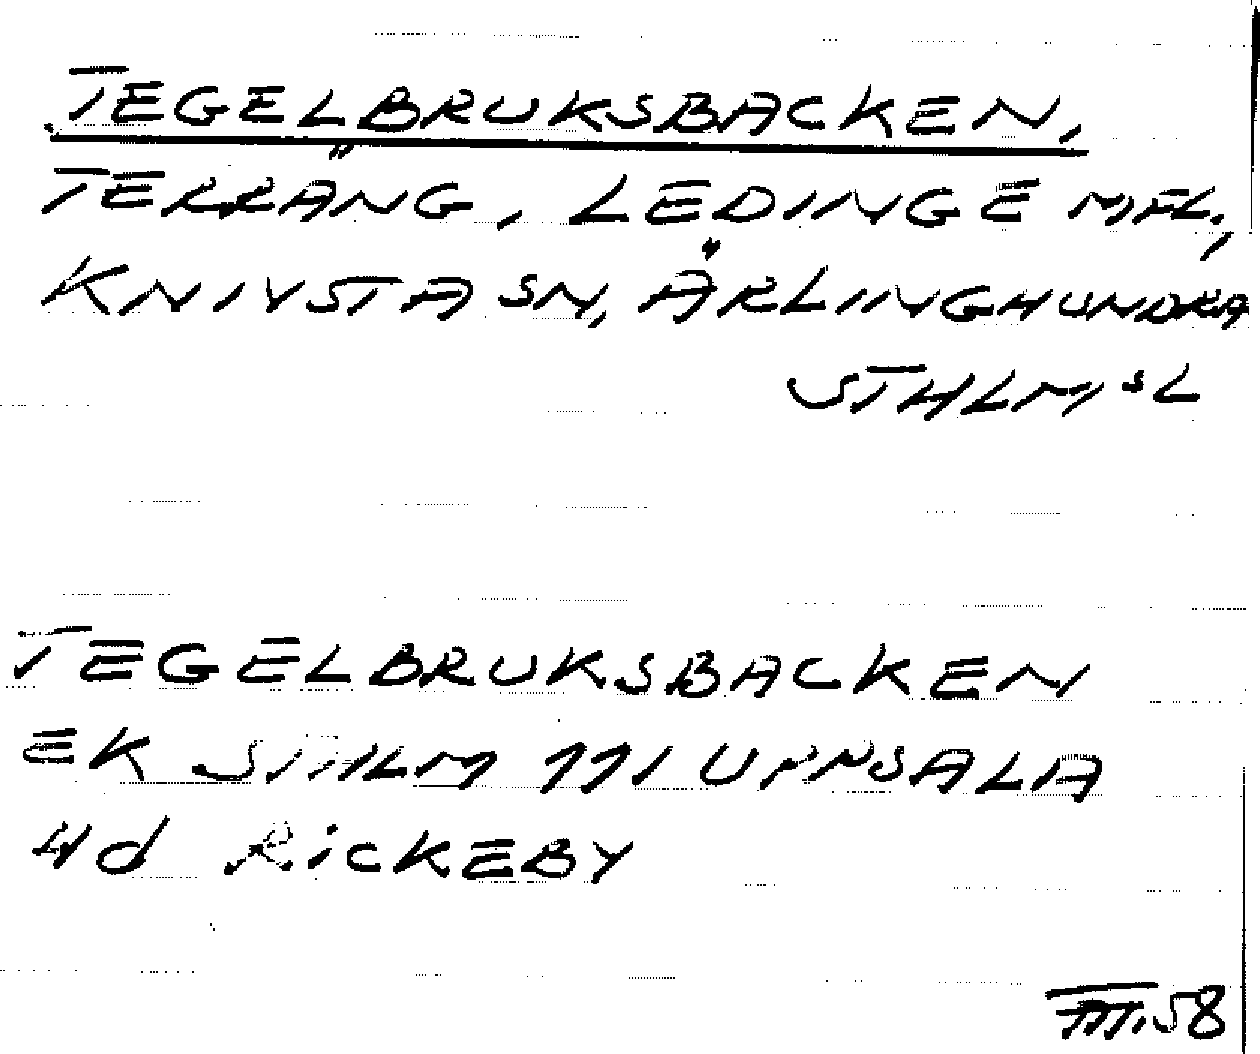 TEGELBRUKSBACKEN,
TERRÄNG, LEDINGE MFL.,
KNIVSTA SN, ÄRLINGHUNDRA
STHLMS L
TEGELBRUKSBACKEN
EK STHLM 111 UPPSALA
4d RICKEBY
58